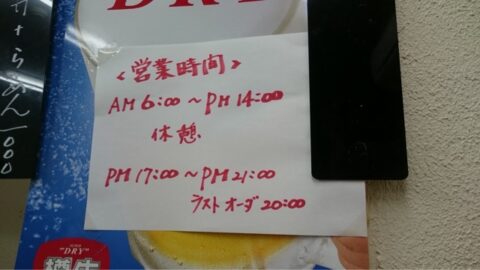 DRY
<営業時間>
AM 6:00 ~ PM 14:00
休憩
PM 17:00 ~ PM 21:00
ラストオーダ 20:00
らーめん 1000
"DRY"
樽生